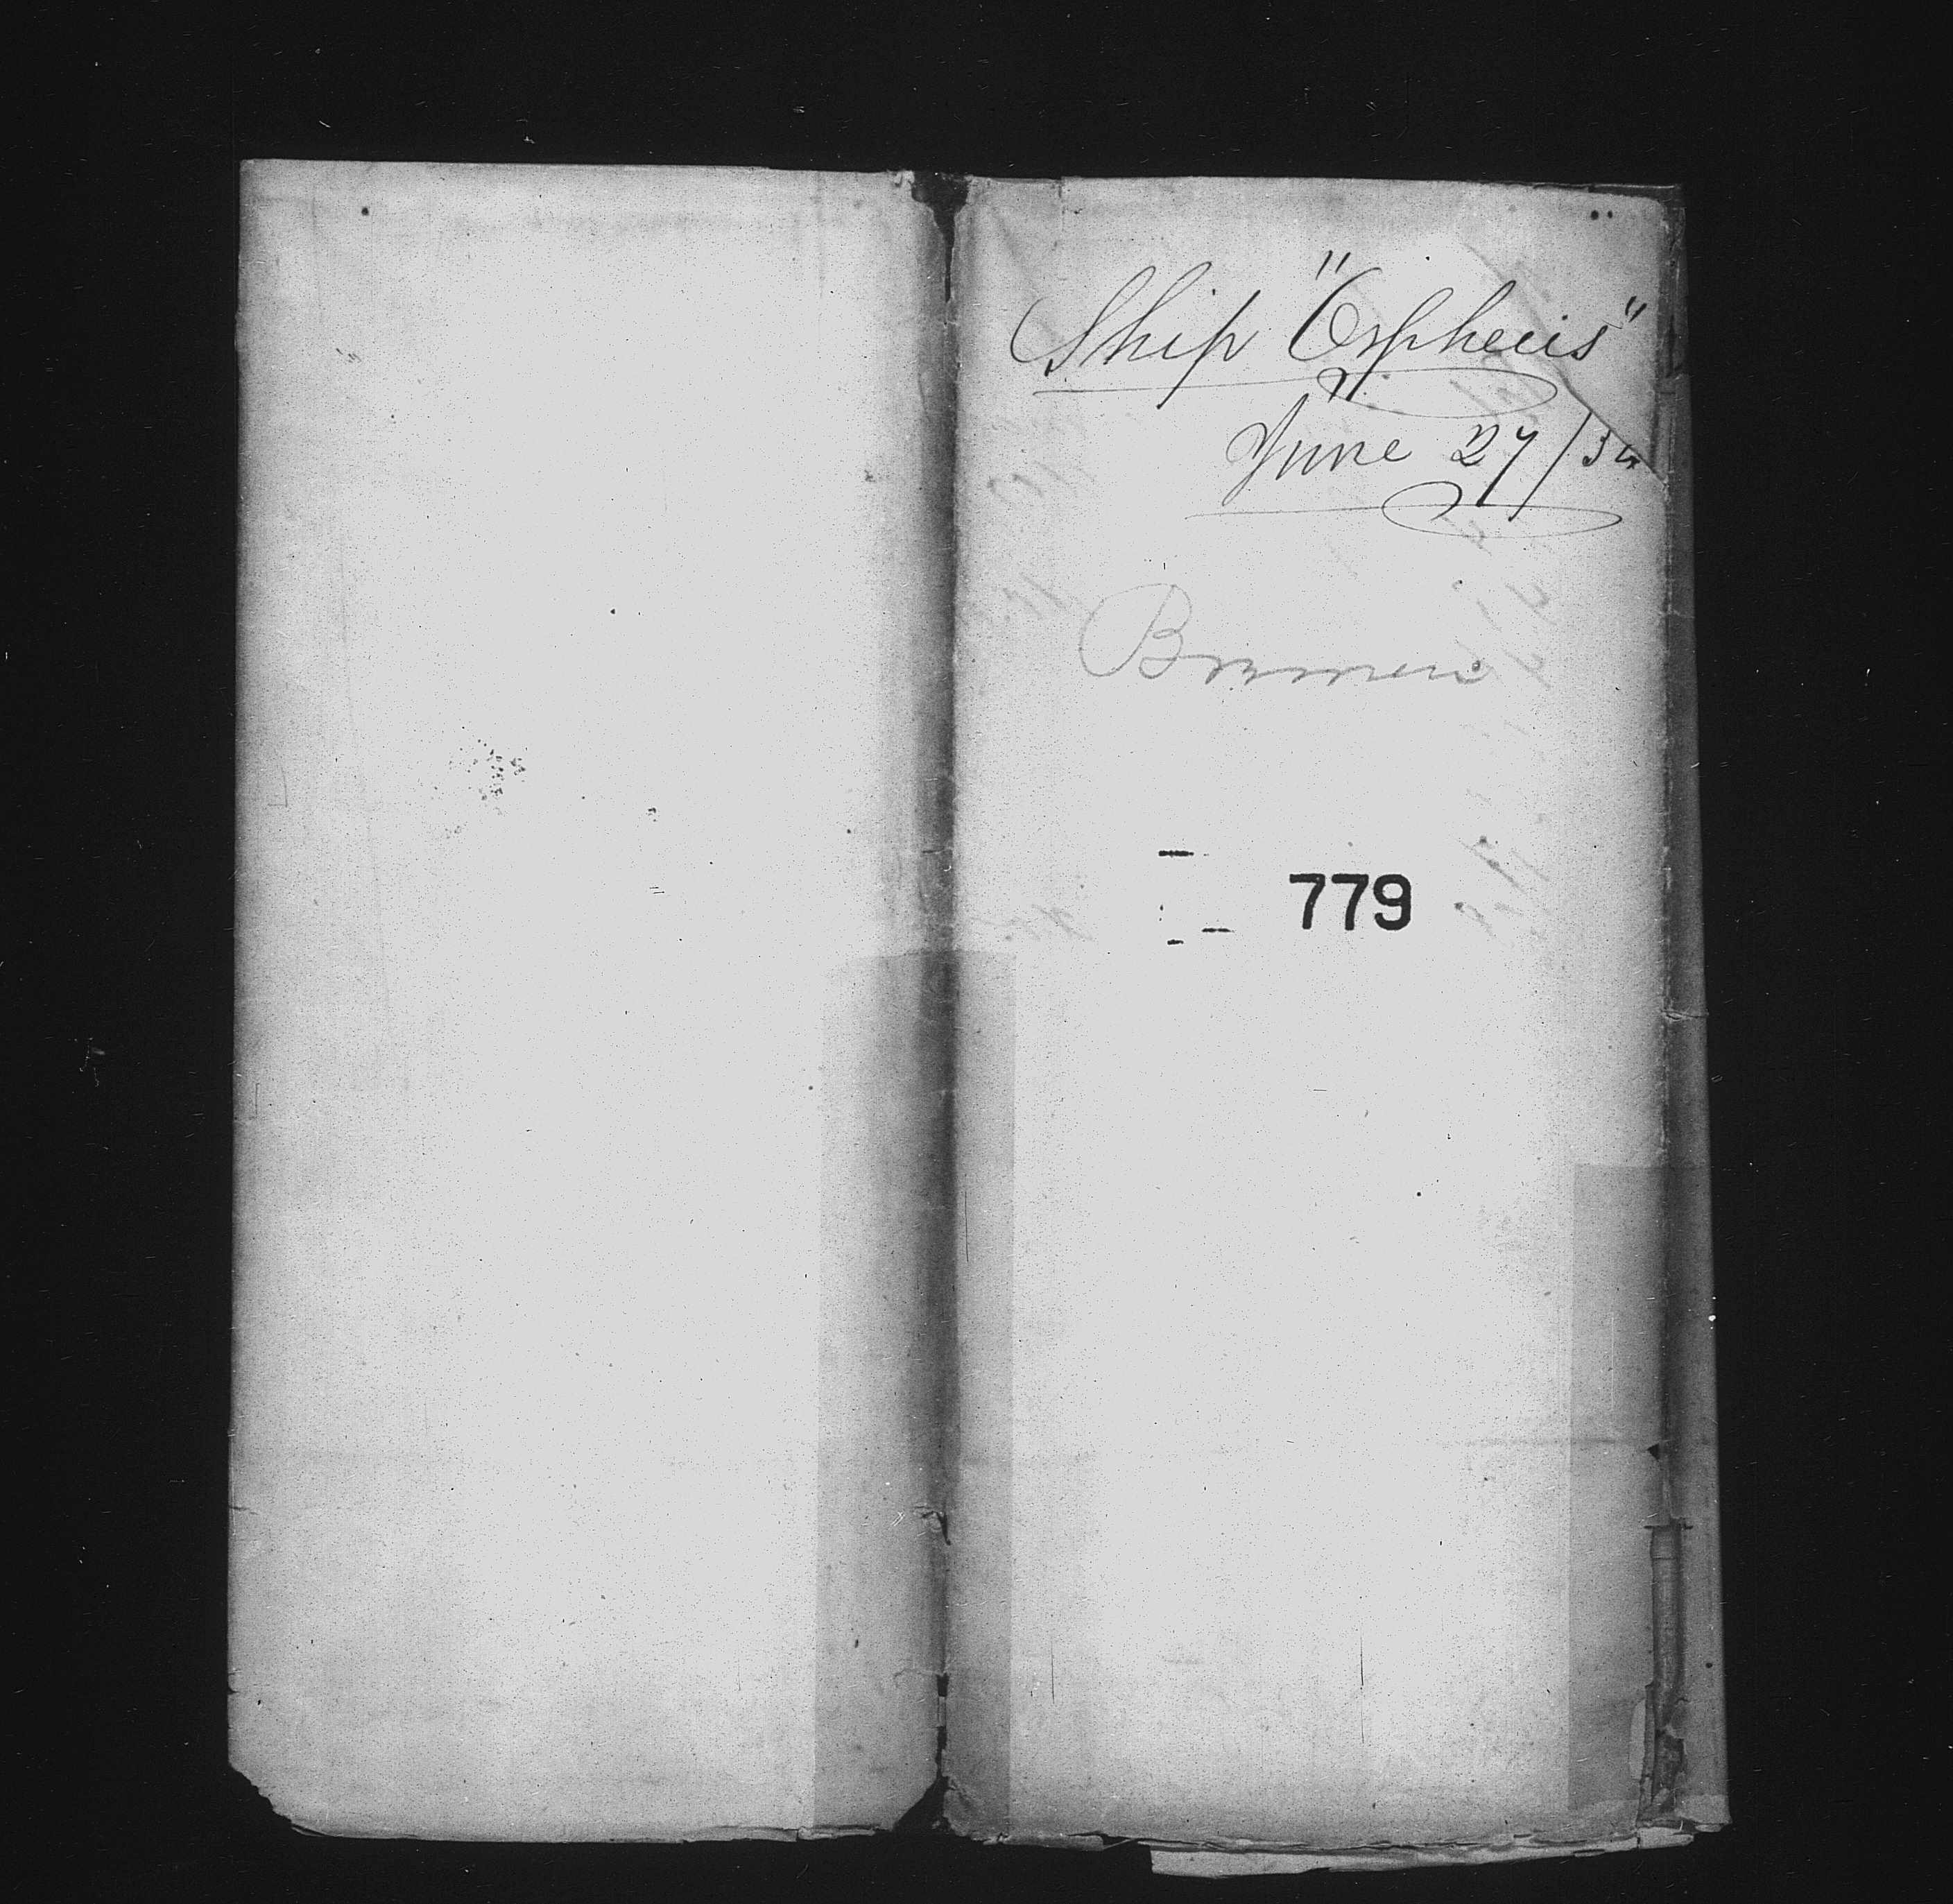 Ship "Orpheus"
June 27/34
Bremen
779